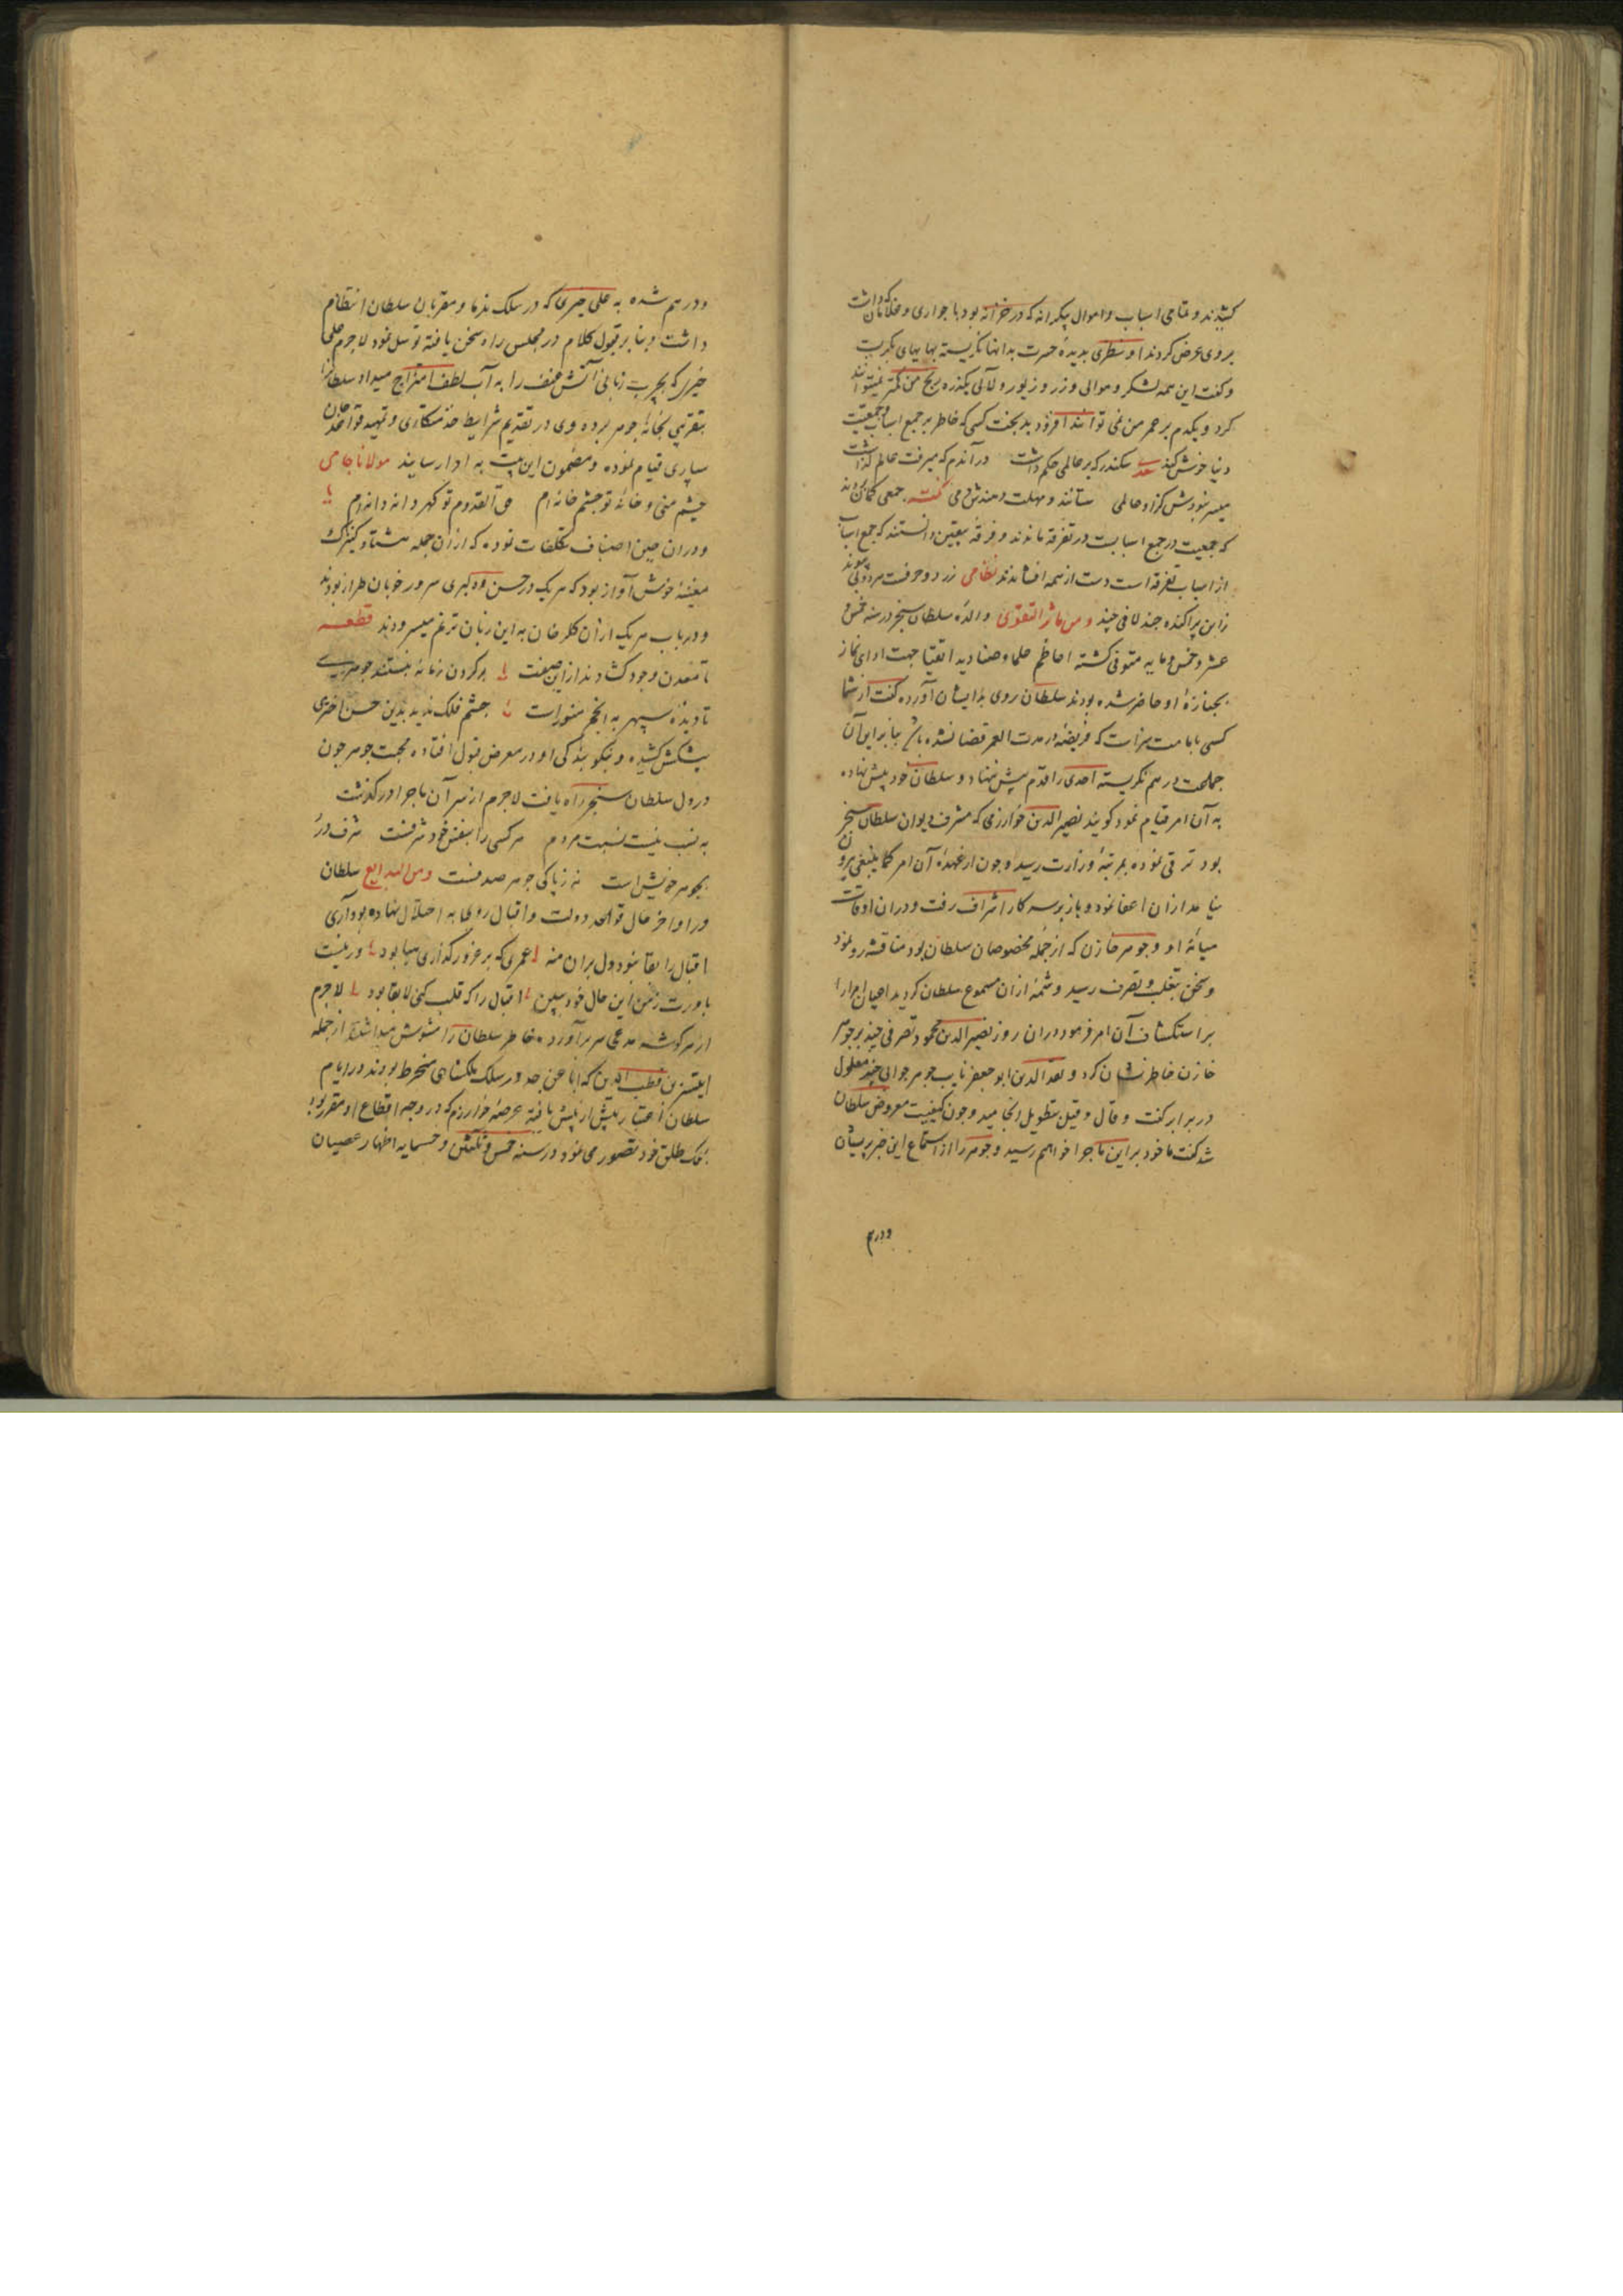 کشیدند و تمامی اسباب و اموال بیکرانه که در خزانه بود با جواری و غلامان که داشت
بروی عرض کردند او سطری بدیده حسرت بدانها نکریسته بهایهای بکریست
و کفت این همه لشکر و موالی و زر و زیور و لآلی یکذره رنج من کمتر نمیتوانند
کرد و یکدم بر عمر من نمی توانند افزود بدبخت کسی که خاطر بر جمع اسباب و جمعیت
دنیا خوش کند سعد سکندر که بر عالمی حکم داشت در آندم که میرفت عالم گذاشت
میسر نبودش کزو عالمی ستانند و مهلت دهندش دمی جمعی کمان بردند
که جمعیت در جمع اسبابست در تفرقه ماندند و فرقه بیقین دانستند که جمع اسباب
از اسباب تفرقه است دست از همه افشاندند نظامی زرد و حرفست
زاین پراکنده چند لافی چند و من ماثر التقوی والده سلطان سنجر در سنه خمس
عشر و خمس و مایه متوفی کشته اعاظم علما و صنادید اتقیا جهت ادای نماز
بجنازه او حاضر شده بودند سلطان روی بایشان آورده کفت از شما
کسی بامامت سزاست که فریضه از مدت العمر قضا نشده باشد بنابر این آن
جماعت در هم نکریسته احدی را قدم پیش ننهاد و سلطان خود پیش نهاده
به آن امر قیام نمود کویند نصیر الدین خوارزمی که مشرف دیوان سلطان سنجر
بود ترقی نموده بمرتبه وزارت رسید و چون از عهده آن امر کما ینبغی بیرون
نیامد از ان اعفا نمود و باز بوسه کار اشراف رفت و دران اوقات
میانه او و جوهر خازن که از جمله مخصوصان سلطان بود مناقشه رو نمود
و سخن بتغلب و تصرف رسید و شمه ازان مسموع سلطان کردید اعیان امرا را
بر استکشاف آن امر فرمود دران روز نصیر الدین محمود تصرفی چند بر جوهر
خازن خاطر نشان کرد و سعد الدین ابو جعفر نایب جوهر جوابی چند معلول
در برابر کفت و قال و قیل بتطویل انجامید و چون کیفیت معروض سلطان
شد کفت ما خود بر این ماجرا خواهم رسید و جوهر را از استماع این خبر پریشان
ودرهم
ودرهم شده به علی چتری که در سلک ندما و مقربان سلطان انتظام
داشت و بنا بر قبول کلام در مجلس راه سخن یافته توسل نمود لاجرم علی
چتری که بچرب زبانی آتش عنف را به آب لطف امتزاج میداد سلطان را
بتقریبی بخانه جوهر برده وی در تقدیم شرایط خدمتکاری و تمهید قواعد جان
سپاری قیام نموده و مضمون این بیت به ادا رسانید مولانا جامی
چشم منی و خانه تو چشم خانه ام حق القدوم تو کهر دانه دانه ام
و دران حین اصناف تکلفات نموده که ازان جمله هشتاد کنیزک
مغنیه خوش آواز بود که هر یک در حسن و دلبری سرور خوبان طراز بودند
و در باب هر یک ازان کلرخان به این زبان ترنم میسرودند قطعه
تا معدن وجود کشادند ازاین صفت بر کردن زمانه نبستند جوهری
تا دیده سپهر به انجم منور است چشم فلک ندید بدین حسن اختری
پیشکش کشیده و نیکو بندکی او در معرض قبول افتاده محبت جوهر چون
در دل سلطان سنجر راه یافت لاجرم از سر آن ماجرا در کذشت
به نسب نیست نسبت مردم هر کسی را بنفس خود شرفست شرف در
بجوهر خویش است نه زپاکی جوهر صدفست ومن البدایع سلطان
در اواخر حال قواعد دولت و اقبال روی به اختلال نهاده بود آری
اقبال را بقا نبود دل بران منه عمری که بر غرور گذاری هبا بود ور نیست
باورت زمن این حال خود ببین اقبال را که قلب کنی لابقا بود لاجرم
از هر کوشه مدعی سر برآورده خاطر سلطان را مشوش میداشتند از جمله
ایلتسز بن قطب الدین که ابا عن جد در سلک ملکشاهی منخرط بودند در ایام
سلطان اعتبار بیش از پیش یافته عرصه خوارزم که در وجه اقطاع او مقرر بود
ملک طلق خود تصور می نمود در سنه خمس و ثلثین و خمسمایه اظهار عصیان